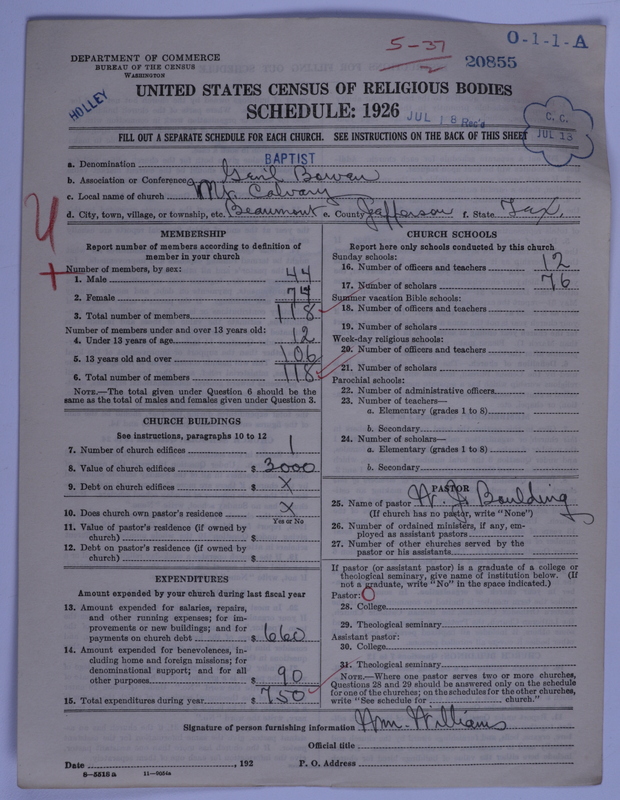 5-37
O-1-1-A
20855
DEPARTMENT OF COMMERCE
BUREAU OF THE CENSUS
WASHINGTON
HOLLEY
UNITED STATES CENSUS OF RELIGIOUS BODIES
SCHEDULE: 1926
JUL 18 Rec'd
C. C.
JUL 13
FILL OUT A SEPARATE SCHEDULE FOR EACH CHURCH. SEE INSTRUCTIONS ON THE BACK OF THIS SHEET
a. Denomination BAPTIST
b. Association or Conference
c. Local name of church Mt. Calvary
d. City, town, village, or township, etc. Beaumont e. County Jefferson f. State Tex.
MEMBERSHIP
Report number of members according to definition of
member in your church
Number of members, by sex:
1. Male 44
2. Female 74
3. Total number of members 118
Number of members under and over 13 years old:
4. Under 13 years of age 12
5. 13 years old and over 106
6. Total number of members 118
NOTE.—The total given under Question 6 should be the
same as the total of males and females given under Question 3.
CHURCH BUILDINGS
See instructions, paragraphs 10 to 12
7. Number of church edifices 1
8. Value of church edifices $ 3000
9. Debt on church edifices $ X
10. Does church own pastor's residence X
Yes or No
11. Value of pastor's residence (if owned by
church) $
12. Debt on pastor's residence (if owned by
church) $
EXPENDITURES
Amount expended by your church during last fiscal year
13. Amount expended for salaries, repairs,
and other running expenses; for im-
provements or new buildings; and for
payments on church debt $ 660
14. Amount expended for benevolences, in-
cluding home and foreign missions; for
denominational support; and for all
other purposes $ 90
15. Total expenditures during year $ 750
CHURCH SCHOOLS
Report here only schools conducted by this church
Sunday schools:
16. Number of officers and teachers 12
17. Number of scholars 76
Summer vacation Bible schools:
18. Number of officers and teachers
19. Number of scholars
Week-day religious schools:
20. Number of officers and teachers
21. Number of scholars
Parochial schools:
22. Number of administrative officers
23. Number of teachers—
a. Elementary (grades 1 to 8)
b. Secondary
24. Number of scholars—
a. Elementary (grades 1 to 8)
b. Secondary
PASTOR
25. Name of pastor W. J. Boulding
(If church has no pastor, write "None")
26. Number of ordained ministers, if any, em-
ployed as assistant pastors
27. Number of other churches served by the
pastor or his assistants
If pastor (or assistant pastor) is a graduate of a college or
theological seminary, give name of institution below. (If
not a graduate, write "No" in the space indicated.)
Pastor: O
28. College
29. Theological seminary
Assistant pastor:
30. College
31. Theological seminary
NOTE.—Where one pastor serves two or more churches,
Questions 28 and 29 should be answered only on the schedule
for one of the churches; on the schedules for the other churches,
write "See schedule for church."
Signature of person furnishing information Wm. Williams
Official title
Date , 192 P. O. Address
8-5518 a 11-9054a